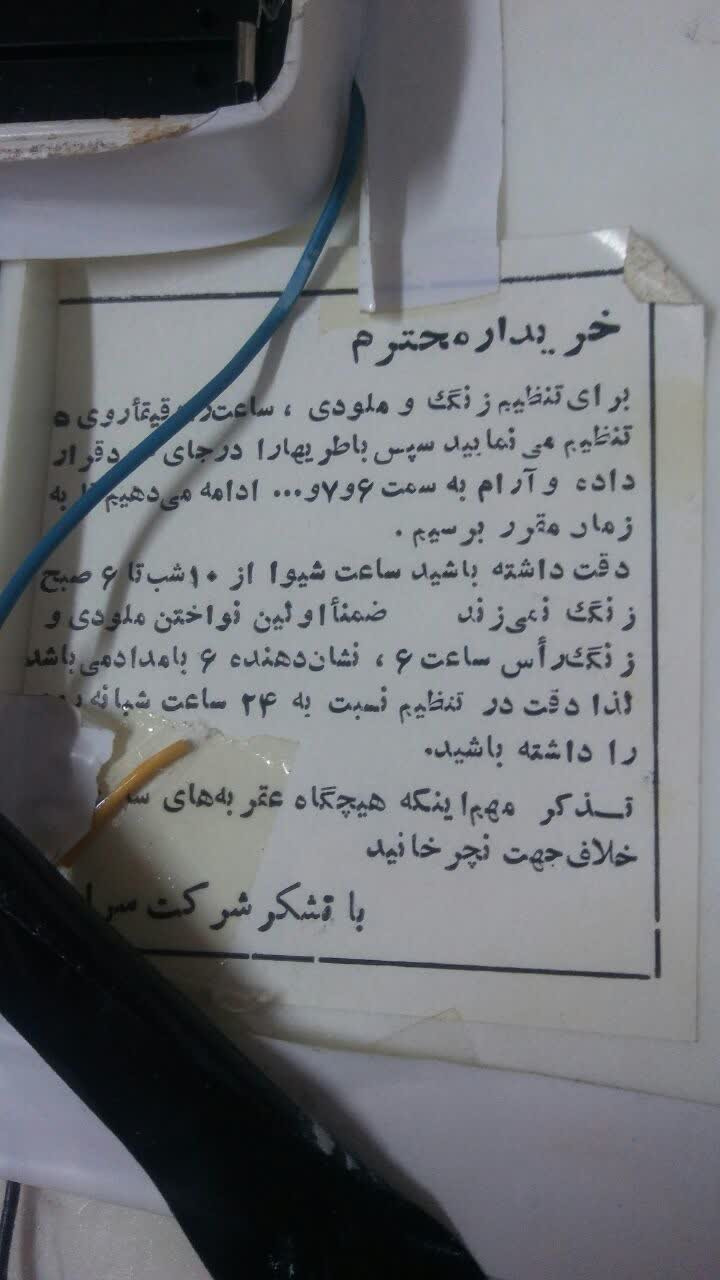 خریدار محترم
برای تنظیم زنگ و ملودی ، ساعت را دقیقأ روی ۵
تنظیم می نمایید سپس باطریهارا درجای خود قرار
داده و آرام به سمت ۶و۷و... ادامه می‌دهیم تا به
زمان مقرر برسیم .
دقت داشته باشید ساعت شیوا از ۱۰ شب تا ۶ صبح
زنگ نمی‌زند ضمنأ اولین نواختن ملودی و
زنگ رأس ساعت ۶ ، نشان‌دهنده ۶ بامداد می‌باشد
لذا دقت در تنظیم نسبت به ۲۴ ساعت شبانه روز
را داشته باشید.
تـذکر مهم اینکه هیچگاه عقربه‌های
خلاف جهت نچرخانید
با تشکر شرکت